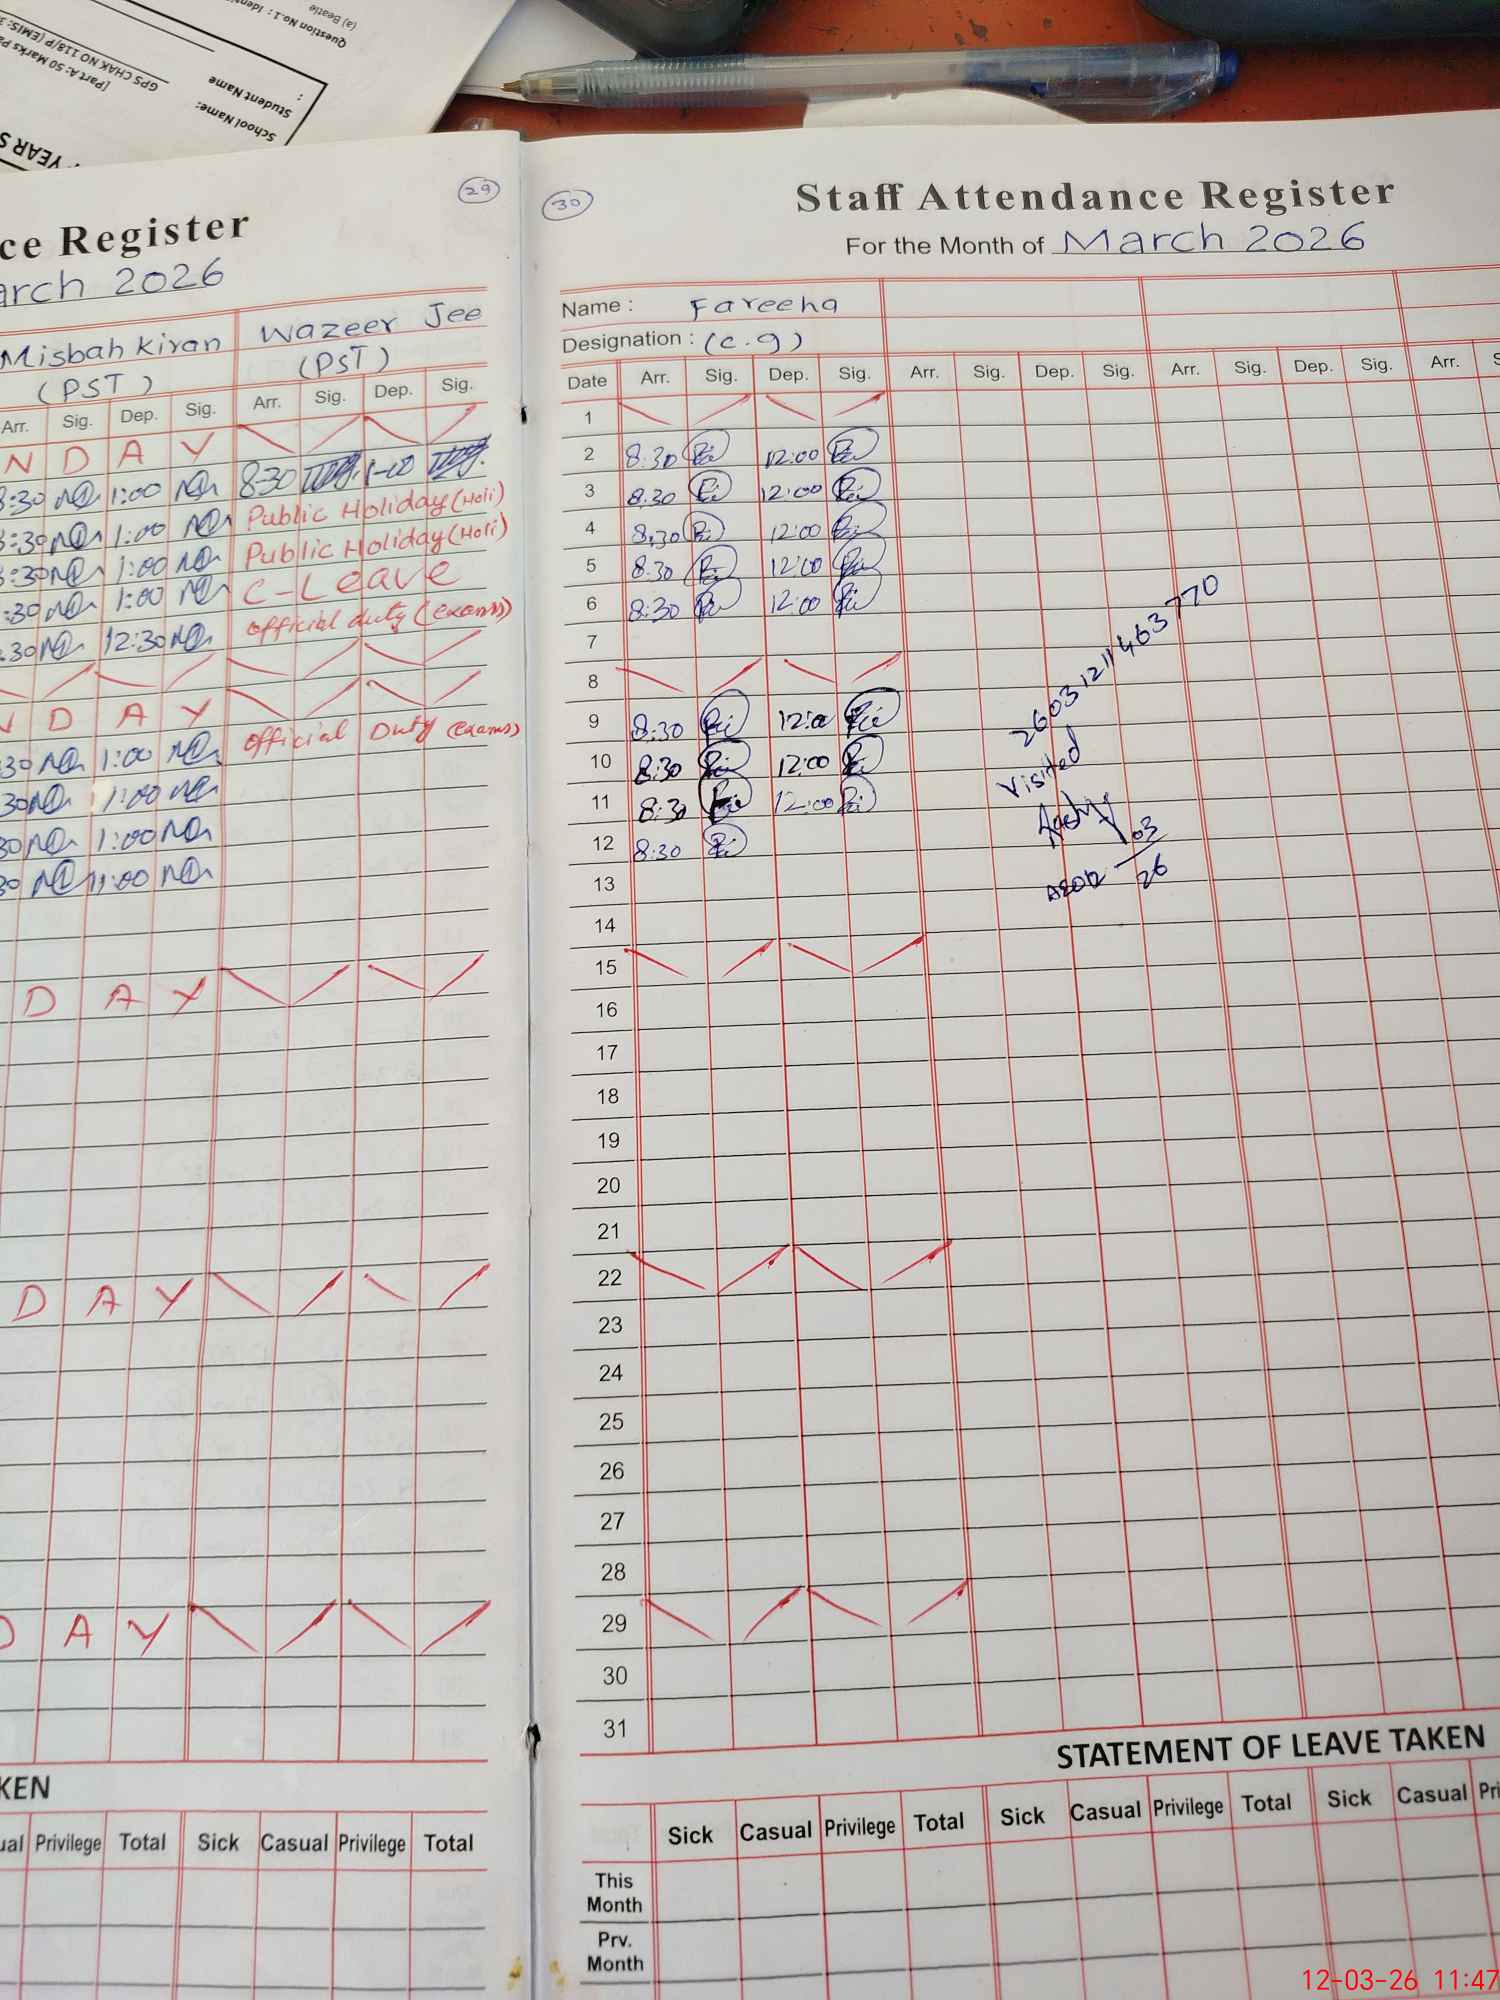 (a) Beetle
Question No.1 : Identi
[Part A: 50 Marks Pa
GPS CHAK NO 118/P (EMIS: 3
Student Name :
School Name:
YEAR S
29
ce Register
arch 2026
Misbah Kiran Wazeer Jee
(PST) (PST)
Arr. Sig. Dep. Sig. Arr. Sig. Dep. Sig.
N D A Y
:30 1:00 8:30 1-00
:30 1:00 Public Holiday (Holi)
:30 1:00 Public Holiday (Holi)
:30 1:00 C-Leave
:30 12:30 official duty (exams)
N D A Y
30 1:00 official Duty (exams)
30 1:00
30 1:00
30 11:00
D A Y
D A Y
D A Y
KEN
ual Privilege Total Sick Casual Privilege Total
30
Staff Attendance Register
For the Month of March 2026
Name : Fareeha
Designation : (C.g)
Date Arr. Sig. Dep. Sig. Arr. Sig. Dep. Sig. Arr. Sig. Dep. Sig. Arr. S
1
2 8:30 12:00
3 8:30 12:00
4 8:30 12:00
5 8:30 12:00
6 8:30 12:00
7
8
9 8:30 12:00
10 8:30 12:00
11 8:30 12:00
12 8:30
13
14
15
16
17
18
19
20
21
22
23
24
25
26
27
28
29
30
31
2603121211463770
Visited
03
26
STATEMENT OF LEAVE TAKEN
Sick Casual Privilege Total Sick Casual Privilege Total Sick Casual Pri
This Month
Prv. Month
12-03-26 11:47